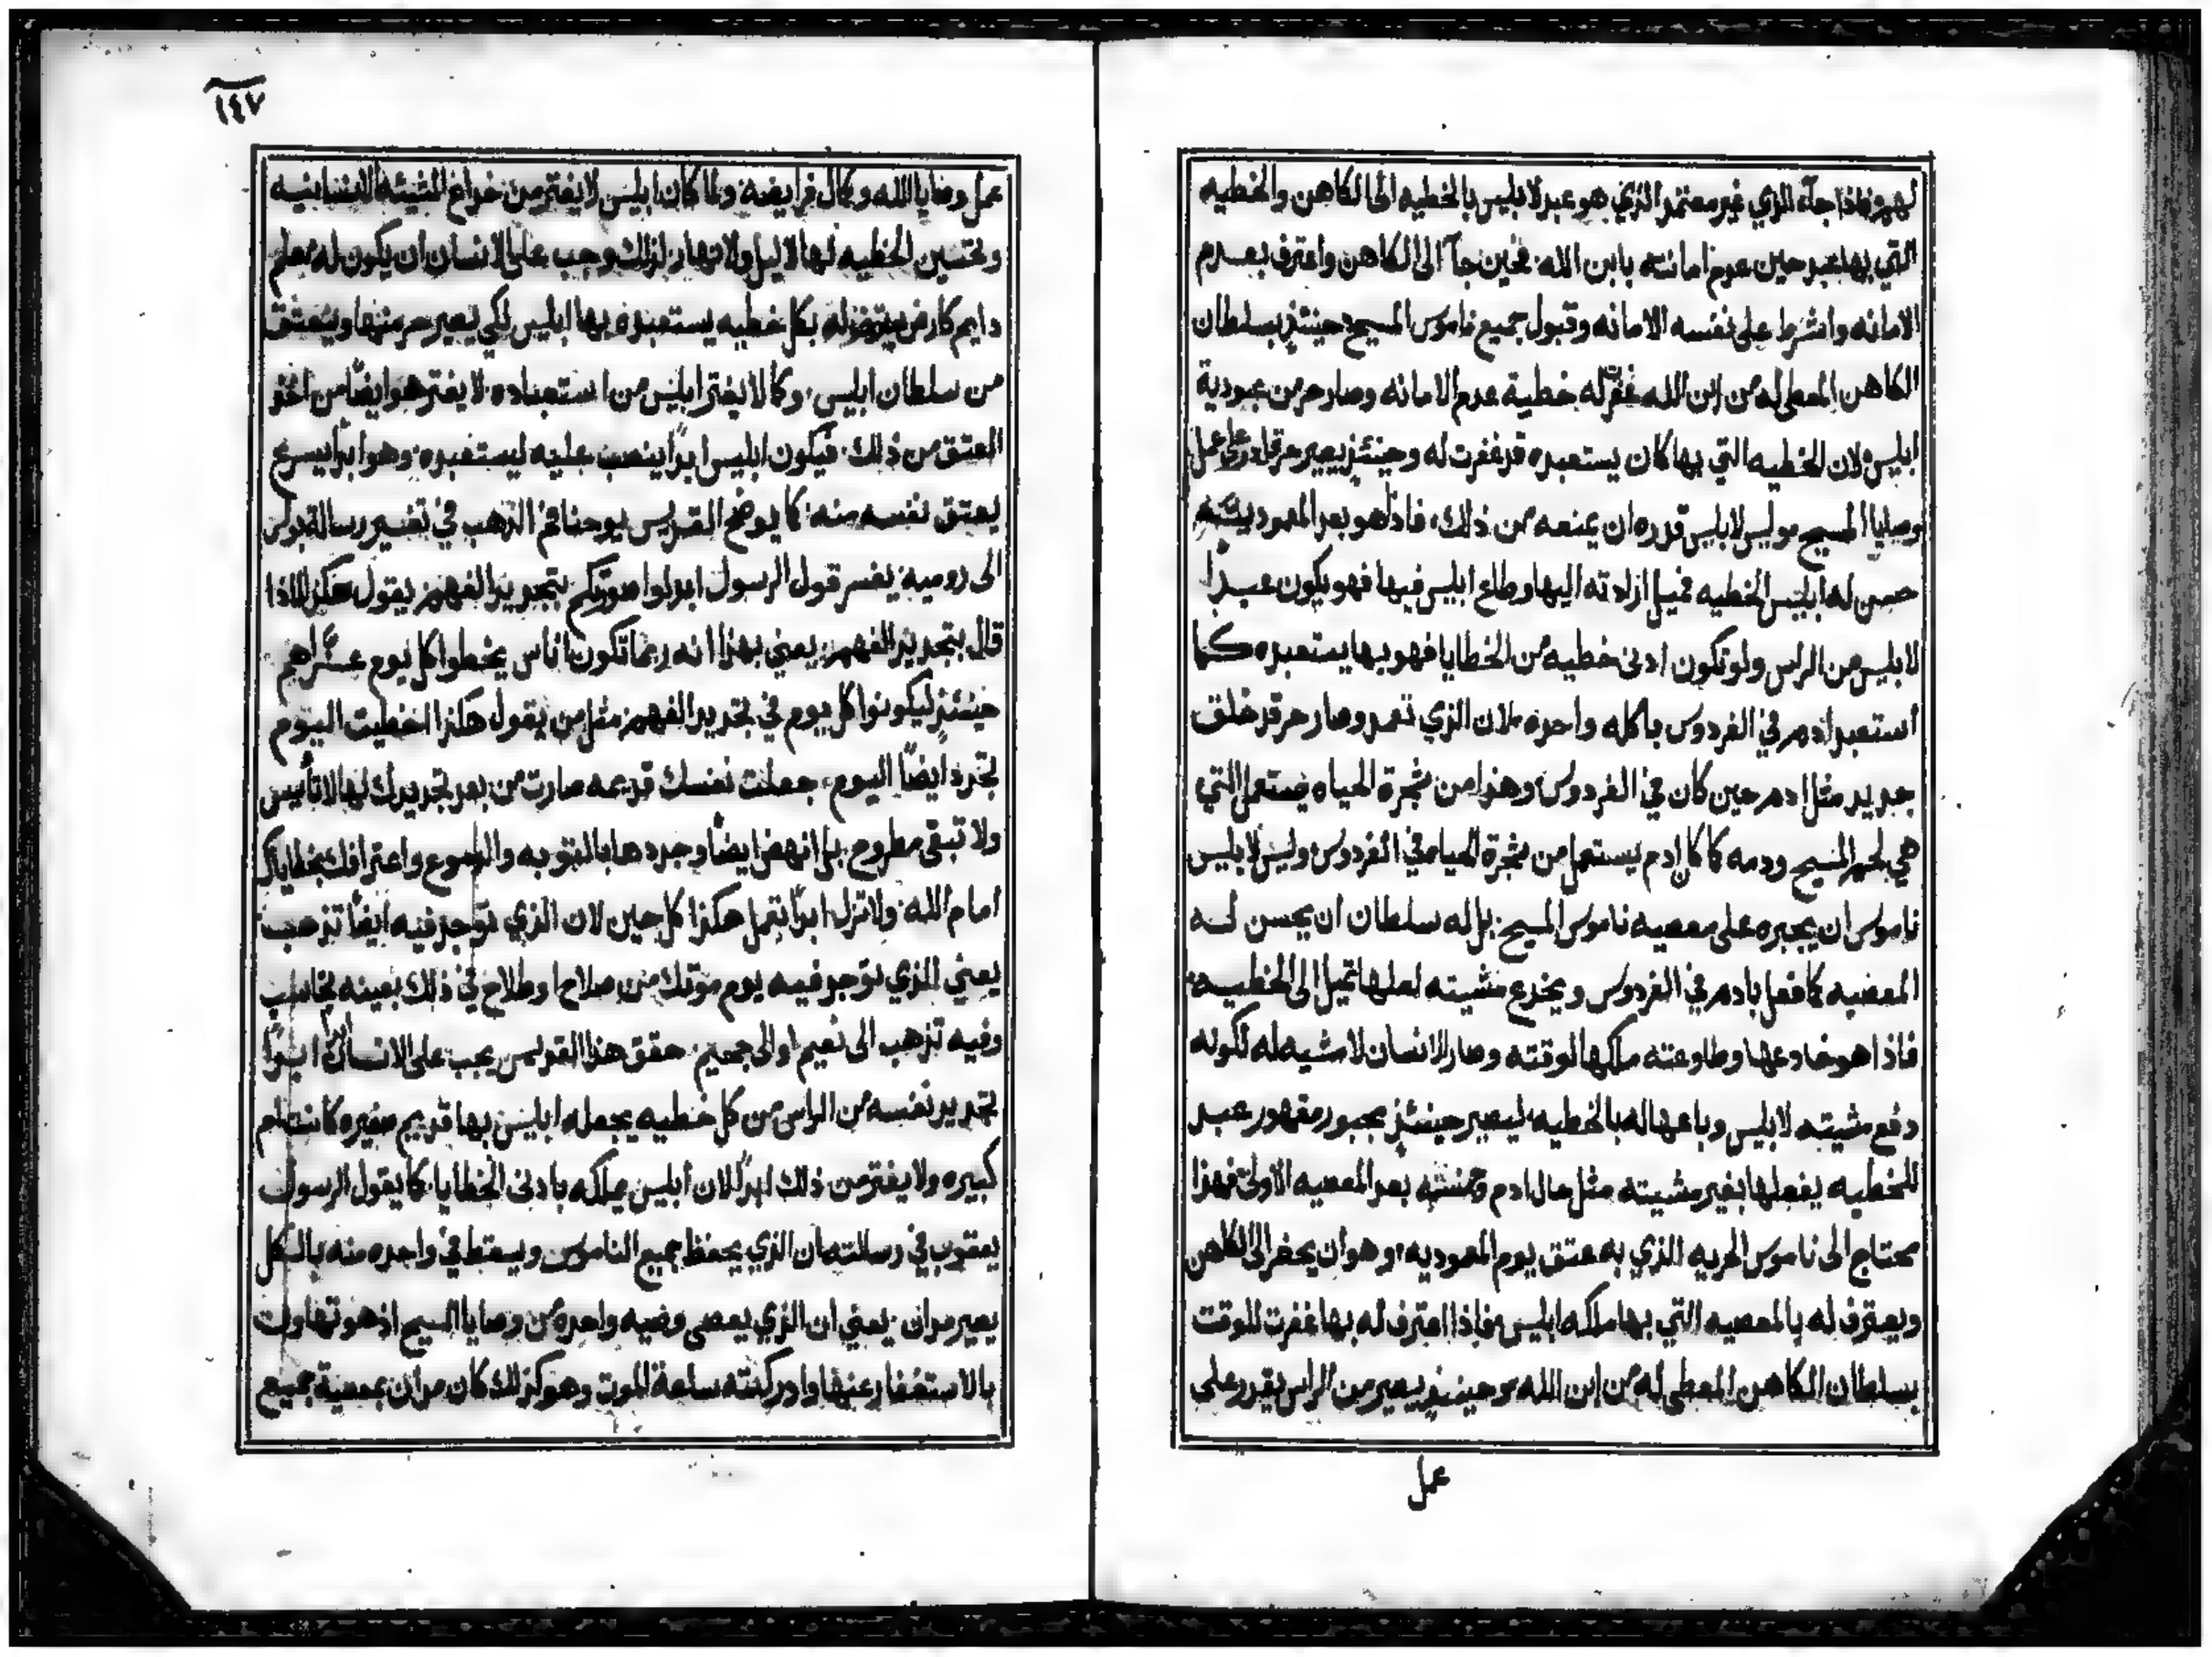 لهم فاذا جآء الذي غير معتمد الذي هو عبد لابليس بالخطيه الى الكاهن والخطيه
التي بها عبد حين عدم امانته بابن الله فحين جآ الى الكاهن واعترف بعدم
الامانه واشرط على نفسه الامانه وقبول جميع ناموس المسيح حينئذ بسلطان
الكاهن المعطى له من ابن الله غفر له خطية عدم الامانه وصار حر من عبودية
ابليس لان الخطيه التي بها كان يستعبده قد غفرت له وحينئذ يصير حر قادر على عمل
وصايا المسيح وليس لابليس قدره ان يمنعه من ذلك فاذا هو بعد المعموديه
حسن له ابليس الخطيه فميل ارادته اليها وطاع ابليس فيها فهو يكون عبدًا
لابليس من الراس ولو تكون ادنى خطيه من الخطايا فهو بها يستعبده كما
استعبد ادم في الفردوس باكله واحده لان الذي تعمد وصار حر قد خلق
جديد مثل ادم حين كان في الفردوس وهذا من شجرة الحياه يستعمل التي
هي لحم المسيح ودمه كما كان ادم يستعمل من شجرة الحياه في الفردوس وليس لابليس
ناموس ان يجبره على معصيه ناموس المسيح بل له سلطان ان يحسن له
المعصيه كما فعل بادم في الفردوس ويخدع مشيته لعلها تميل الى الخطيه
فاذا هو خادعها وطاوعته ملكها لوقته وصار الانسان لا مشيه له لكونه
دفع مشيته لابليس وباعها له بالخطيه ليصير حينئذ مجبور مقهور عبد
للخطيه يفعلها بغير مشيته مثل حال ادم بعد المعصيه الاولى فهذا
محتاج الى ناموس الحريه الذي به عتق يوم المعموديه وهو ان يحضر الى الكاهن
ويعترف له بالمعصيه التي بها ملكه ابليس فاذا اعترف له بها غفرت للوقت
بسلطان الكاهن المعطى له من ابن الله وحينئذ يصير من الراس يقدر على
عمل
١٤٧
عمل وصايا الله وكمال فرايضه ولما كان ابليس لا يفتر من خداع المشيئه الانسانيه
وتحسين الخطيه لها لا ليل ولا نهار لذلك وجب على الانسان ان يكون له معلم
دايم كل خطيه يستعبده بها ابليس لكي يصير حر منها وينعتق
من سلطان ابليس وكما لا يفتر ابليس من استعباده لا يفتر هو ايضًا من اخذ
العتق من ذلك فيكون ابليس ابدًا ينصب عليه ليستعبده وهو ابدًا يسرع
يعتق نفسه منه كما يوضح القديس يوحنا فم الذهب في تفسير رسالة بولس
الى روميه يفسر قول الرسول ابدلوا صورتكم بتجديد الفهم يقول هكذا لماذا
قال بتجديد الفهم يعني بهذا انه ربما تكون اناس يخطوا كل يوم
حينئذ ليكونوا كل يوم في تجديد الفهم مثل من يقول هكذا اخطيت اليوم
تجدد ايضًا اليوم جعلت نفسك قديمه صارت من بعد تجديدك لها لا تأيس
ولا تبقى مطروح بل انهض ايضًا وجددها بالتوبه والدموع واعترافك بخطاياك
امام الله ولا تزل ابدًا تعمل هكذا كل حين لان الذي توجد فيه ايضًا تذهب
يعني الذي توجد فيه يوم موتك من صلاح او طلاح في ذلك بعينه تحاسب
وفيه تذهب الى نعيم او الى جحيم حقق هذا القديس يجب على الانسان ابدًا
تجديد نفسه من الراس من كل خطيه يجعله ابليس بها قديم صغيره كانت ام
كبيره ولا يفتر من ذلك ابدًا لان ابليس يملكه بادنى الخطايا كما يقول الرسول
يعقوب في رسالته ان الذي يحفظ جميع الناموس ويسقط في واحده منه بالكل
يصير مدان يعني ان الذي يعصى وصيه واحده من وصايا المسيح اذ هو تهاون
بالاستغفار عنها وادركته ساعة الموت وهو كذلك كان مدان بمعصية جميع